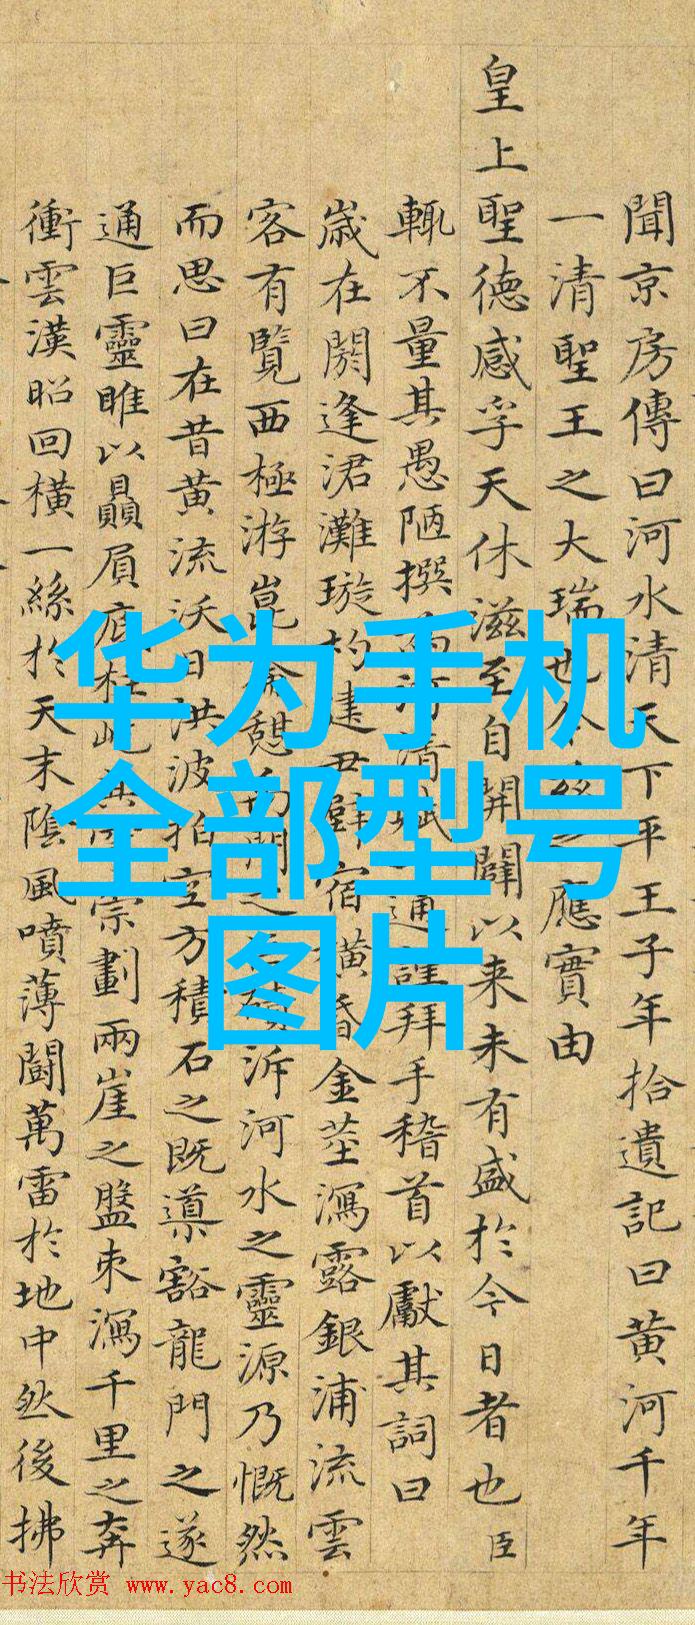 聞京房傳曰河水清天下平王子年拾遺記曰黄河千年
一清聖王之大瑞也今之應實由
皇上聖德感孚天休滋至自開闢以来未有盛於今日者也臣
輒不量其愚陋撰河清通謹拜手稽首以獻其詞曰
歳在閼逢涒灘璇杓建宿橫昏金莖瀉露銀浦流雲
客有覽西極游崑憩門之泝河水之靈源乃慨然
而思曰在昔黄流沃日洪波拍空方積石之既導豁龍門之遂
通巨靈睢以贔屓底柱屹崇劃兩崖之盤束瀉千里之奔
衝雲漢昭回橫一絲於天末陰風噴薄闘萬雷於地中然後拂
华为手机
全部型号
图片
书法欣赏 www.yac8.com